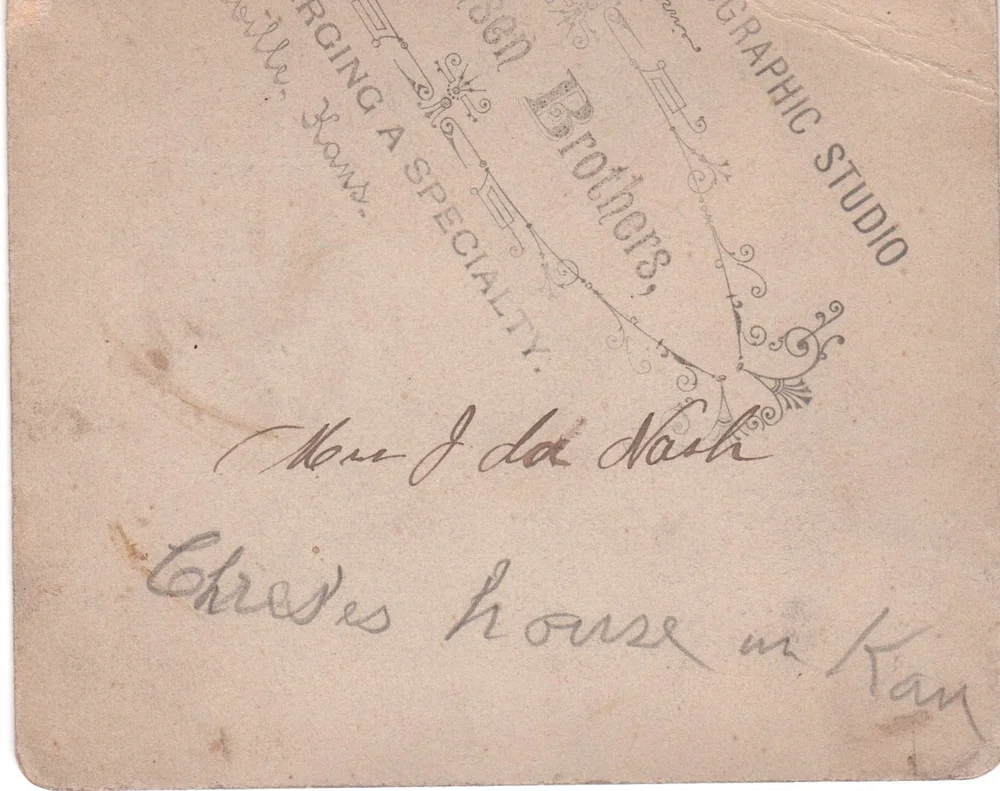 GRAPHIC STUDIO
sen Brothers,
RGING A SPECIALTY.
ville, Kans.
Mrs Ida Nash
house in Kan